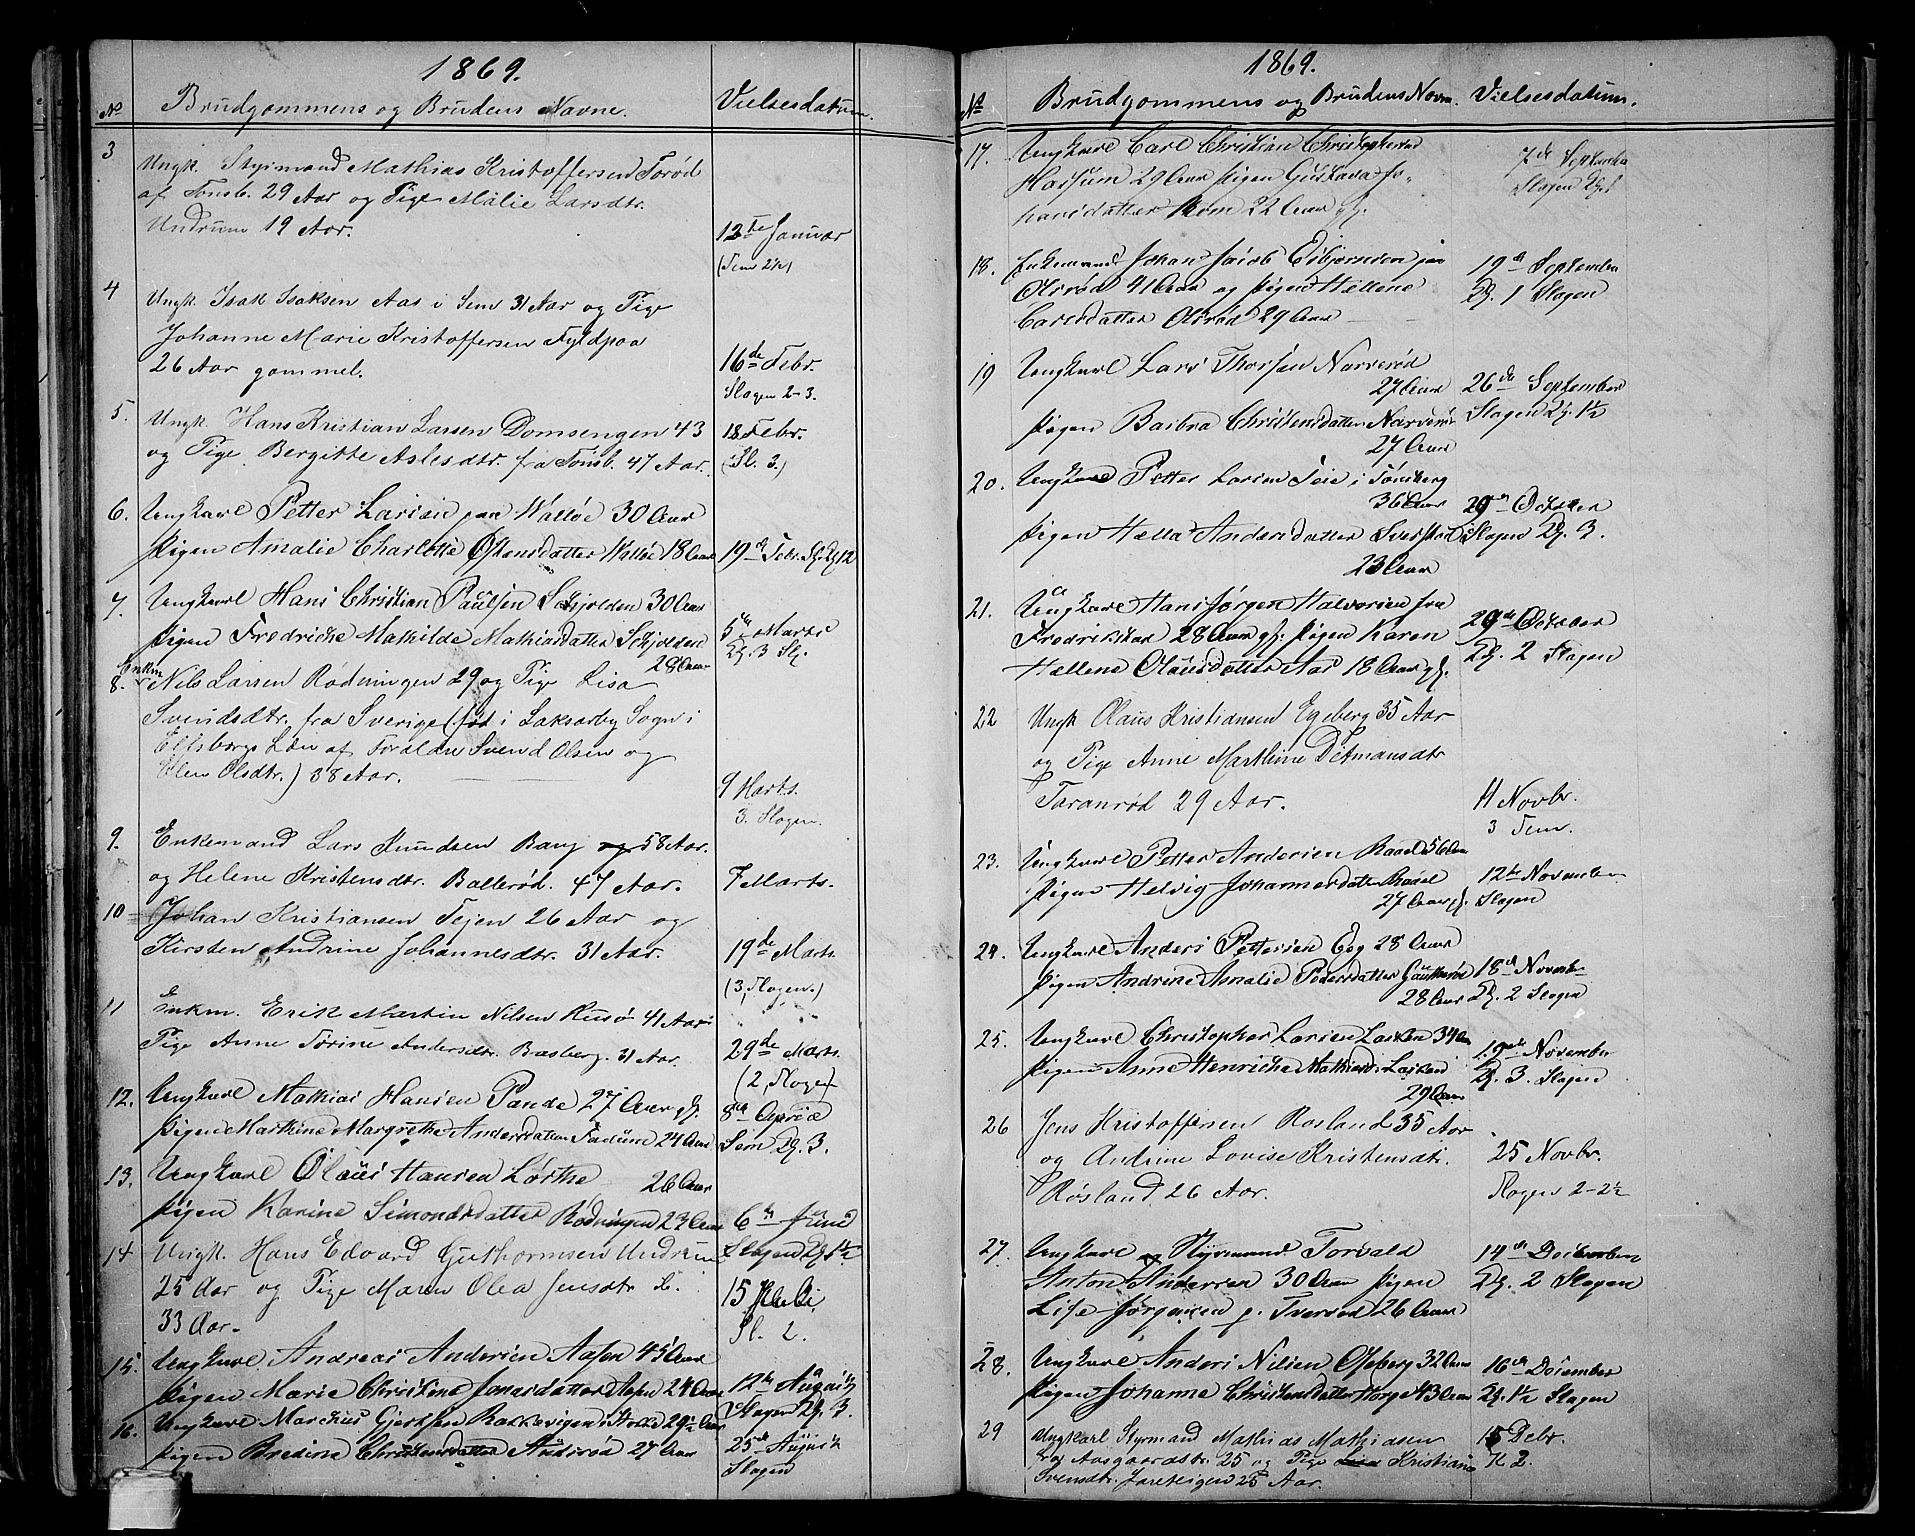 1869.
No Brudgommens og Brudens Navne. Vielsesdatum.
3 Ungk. Styrmand Mathias Kristoffersen Torød
af Tonsb. 29 Aar og Pige Malie Larsdtr.
Undrum 19 Aar. 12te Januar
(Sem 2½)
4 Ungk. Isak Isaksen Aas i Sem 31 Aar og Pige
Johanne Marie Kristoffersen Fyldpaa
26 Aar gammel. 16de Febr.
Slagen 2-3.
5. Ungk. Hans Kristian Larsen Domsengen 43 18 Febr.
og Pige Bergitte Aslesdtr. fra Tonsb. 47 Aar. (Sl. 3.)
6. Ungkarl Petter Larsen paa Valløe 30 Aar
Pigen Amalie Charlotte Ostensdatter Valløe 18 Aar 19de Febr.
7. Ungkarl Hans Christian Paulsen Schjolden 30 Aar
Pigen Fredricke Mathilde Mathiasdatter Schjolden 5te Marts
28 Aar Kl. 3 Sl.
8. Enkm. Nils Larsen Rødningen 29 og Pige Lisa
Svendsdtr. fra Sverige (fød i Laksarby Sogn i
Elfsborgs Len af Foræld. Svend Olsen og
Elen Olsdtr.) 38 Aar. 9 Marts.
3. Slagen.
9. Enkemand Lars Knudsen Bang 58 Aar.
og Helene Kristensdtr. Ballerød. 47 Aar. 7 Marts.
10 Johan Kristiansen Tejen 26 Aar og
Kirsten Andrine Johannesdtr. 31 Aar. 19de Marts
(3, Slagen.)
11 Enkm. Erik Martin Nilsen Husø 41 Aar
Pige Anne Torine Andersdtr. Basberg. 31 Aar. 29de Marts.
(2, Slagen)
12. Ungkarl Mathias Hansen Pande 27 Aar gl. 8de April
Pigen Marthine Margrethe Andersdatter Fadum 24 Aar Sem Kl. 3.
13. Ungkarl Olaus Hansen Lørthe 26 Aar
Pigen Karine Simonsdatter Rødningen 23 Aar 6te Juni
14 Ungk. Hans Edvard Guthormsen Undrum Slagen Kl. 1½
25 Aar og Pige Maren Olea Jensdtr. 15 Juli
33 Aar. Sl. 2.
15. Ungkarl Andreas Andersen Aasen 45 Aar
Pigen Marie Christine Jonasdatter Aasen 24 Aar 12te August
Slagen Kl. 3.
16. Ungkarl Marchus Gjertsen Rakkevigen i Stokke 29½ Aar
Pigen Bredine Christensdatter 27 Aar 25de August
Slagen
1869.
No Brudgommens og Brudens Navne. Vielsesdatum.
17. Ungkarl Carl Christian Christophersen 7de September
Haisum 29 Aar Pigen Gustava Jo- Slagen Kl. 1
hansdatter Rom 22 Aar gl.
18. Enkemand Johan Jacob Esbjørnsen paa 19de September
Olsrød 41 Aar og Pigen Hellene Kl. 1 Slagen
Carlsdatter Olsrød 29 Aar
19 Ungkarl Lars Thorsen Narverød
27 Aar 26de September
Pigen Baibra Christensdatter Narverød Slagen Kl. 1½
27 Aar
20. Ungkarl Petter Larsen Teie i Tønsberg
36 Aar 29de October
Pigen Hella Andersdatter Slagen Kl. 3.
23 Aar
21. Ungkarl Hans Jørgen Halvorsen fra 29de October
Fredrikstad 28 Aar gl. Pigen Karen Kl. 2 Slagen
Hellene Olausdatter Aas 18 Aar gl.
22 Ungk Olaus Kristiansen Egeberg 35 Aar
og Pige Anne Marthine Ditmansdtr
Taranrød 29 Aar. 11 Novbr.
3 Sem.
23. Ungkarl Petter Andersen Raael 56 Aar 12te November
Pigen Helvig Johannesdatter Raael
27 Aar gl. Slagen
24. Ungkarl Anders Pettersen Eeg 28 Aar
Pigen Andrine Amalie Pedersdatter Gauterød 18de Novemb.
28 Aar Kl. 2 Slagen
25. Ungkarl Christopher Larsen Lasken 34 Aar 19de November
Pigen Anne Henricke Mathiasd. Lasken Kl. 3. Slagen
29 Aar
26 Jens Kristoffersen Rosland 35 Aar
og Andrine Lovise Kristensdtr. 25 Novbr.
Røsland 26 Aar. Slagen 2-2½
27. Ungkarl og Styrmand Torvald 14de December
Anton Andersen 30 Aar Pigen Kl. 2 Slagen
Lise Jørgensen p. Tverved 26 Aar
28. Ungkarl Anders Nilsen Oseberg 32 Aar 16de December
Pigen Johanne Christensdatter Horge 43 Aar Kl. 1½ Slagen
29 Ungkarl Styrmand Mathias Mathiasen 15 Debr.
fra Aasgaardstr. 25 og Pige Kristiane Kl 2.
Svensdtr. Jareteigen 25 Aar.